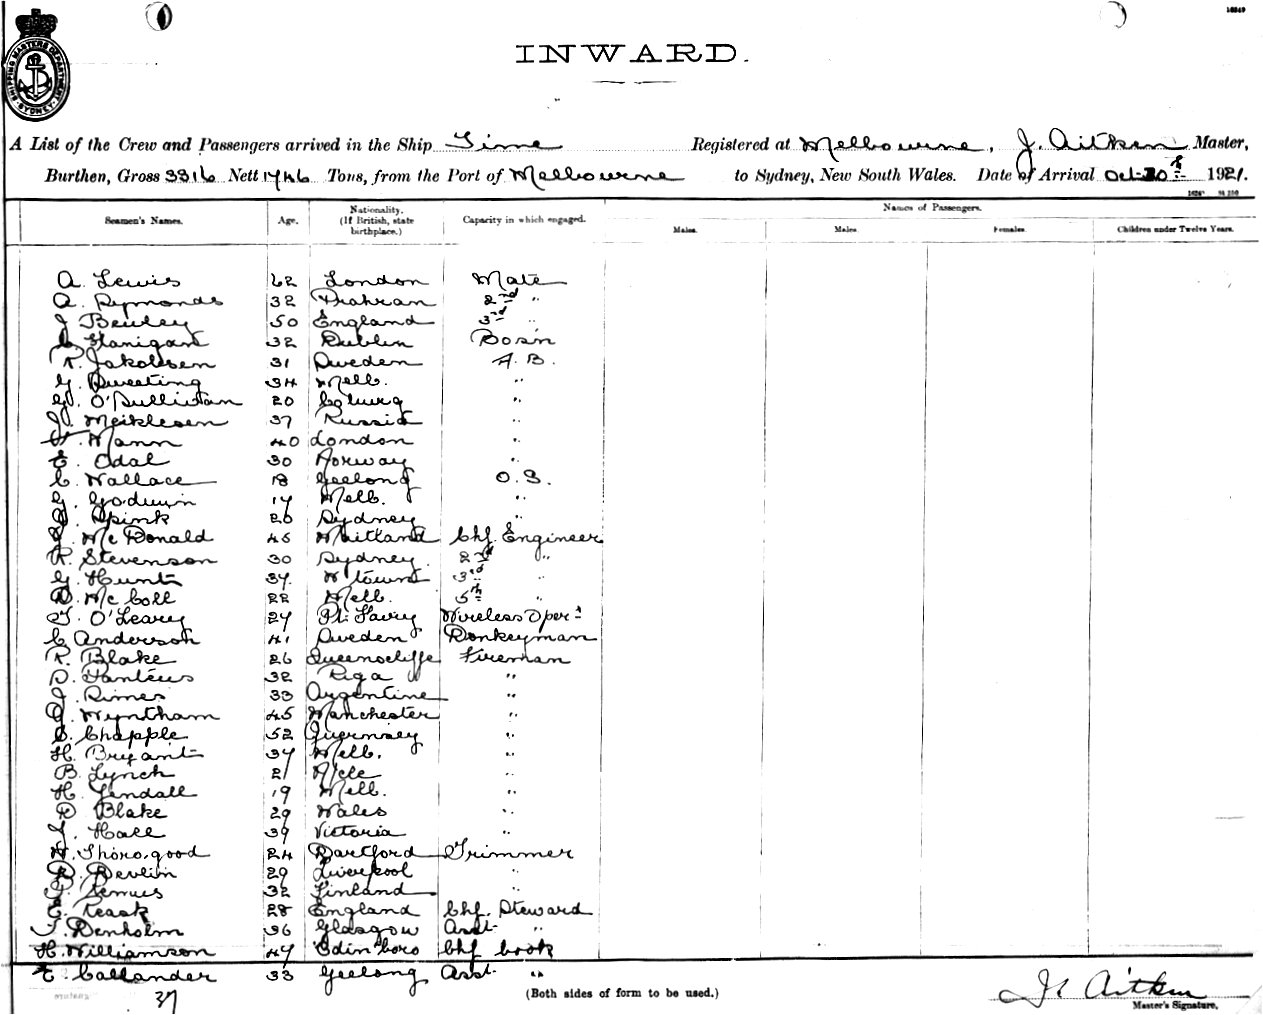 SHIPPING MASTERS DEPARTMENT SYDNEY
INWARD.
A List of the Crew and Passengers arrived in the Ship Time Registered at Melbourne, J. Aitken Master,
Burthen, Gross 3316 Nett 1746 Tons, from the Port of Melbourne to Sydney, New South Wales. Date of Arrival Oct. 1921.
Names of Passengers.
Seamen's Names. Age. Nationality. (If British, state birthplace.) Capacity in which engaged. Males. Males. Females. Children under Twelve Years.
A. Lewis 62 London Mate
A. Symonds 32 Prahran 2nd "
J Bewley 50 England 3rd "
Flanigan 32 Dublin Bosn
R. Jakobsen 31 Sweden A.B.
G. Sweeting 34 Melb. "
O'Sullivan 20 Coburg "
Meiklesen 37 Russia "
Mann 40 London "
E. Odal 30 Norway "
C. Wallace 18 Geelong O.S.
G. Godwin 17 Melb. "
Spink 20 Sydney "
J. McDonald 45 Maitland Chf. Engineer
R. Stevenson 30 Sydney 2nd "
G. Hunt 37 W town 3rd "
D. McColl 22 Melb. 5th "
T. O'Leary 27 Pt. Fairy Wireless Oper
C Anderson 41 Sweden Donkeyman
R. Blake 26 Queenscliffe Fireman
32 Riga "
J. Rimes 33 Argentine "
Wyntham 45 Manchester "
Chapple 52 Guernsey "
H. Bryant 37 Melb. "
B. Lynch 21 "
H. Kendall 19 Melb. "
D Blake 29 Wales "
J. Hall 39 Victoria "
Thorogood 24 Dartford Trimmer
Devlin 29 Liverpool "
Remus 32 Finland "
E. Peask 28 England Chf. Steward
T. Denholm 36 Glasgow Asst "
H. Williamson 47 Edinboro Chf Cook
E. Callander 33 Geelong Asst. "
37
(Both sides of form to be used.)
J. Aitken
Master's Signature.